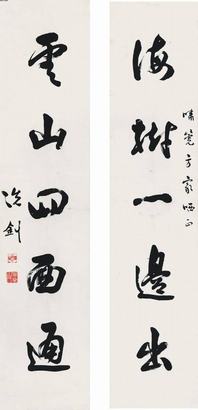 海樹一邊出
嘯篪方家哂正
雲山四面通
冷劍